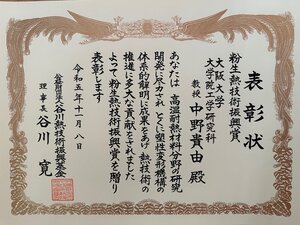 表彰状
粉生熱技術振興賞
大阪大学
大学院工学研究科
教授 中野貴由 殿
あなたは 高温耐熱材料分野の研究
開発に尽力され とくに塑性変形機構の
体系的解明に成果をあげ 熱技術の
推進に多大な貢献をされました
よって粉生熱技術振興賞を贈り
表彰します
令和五年十一月八日
公益財団法人谷川熱技術振興基金
理事長 谷川 寛